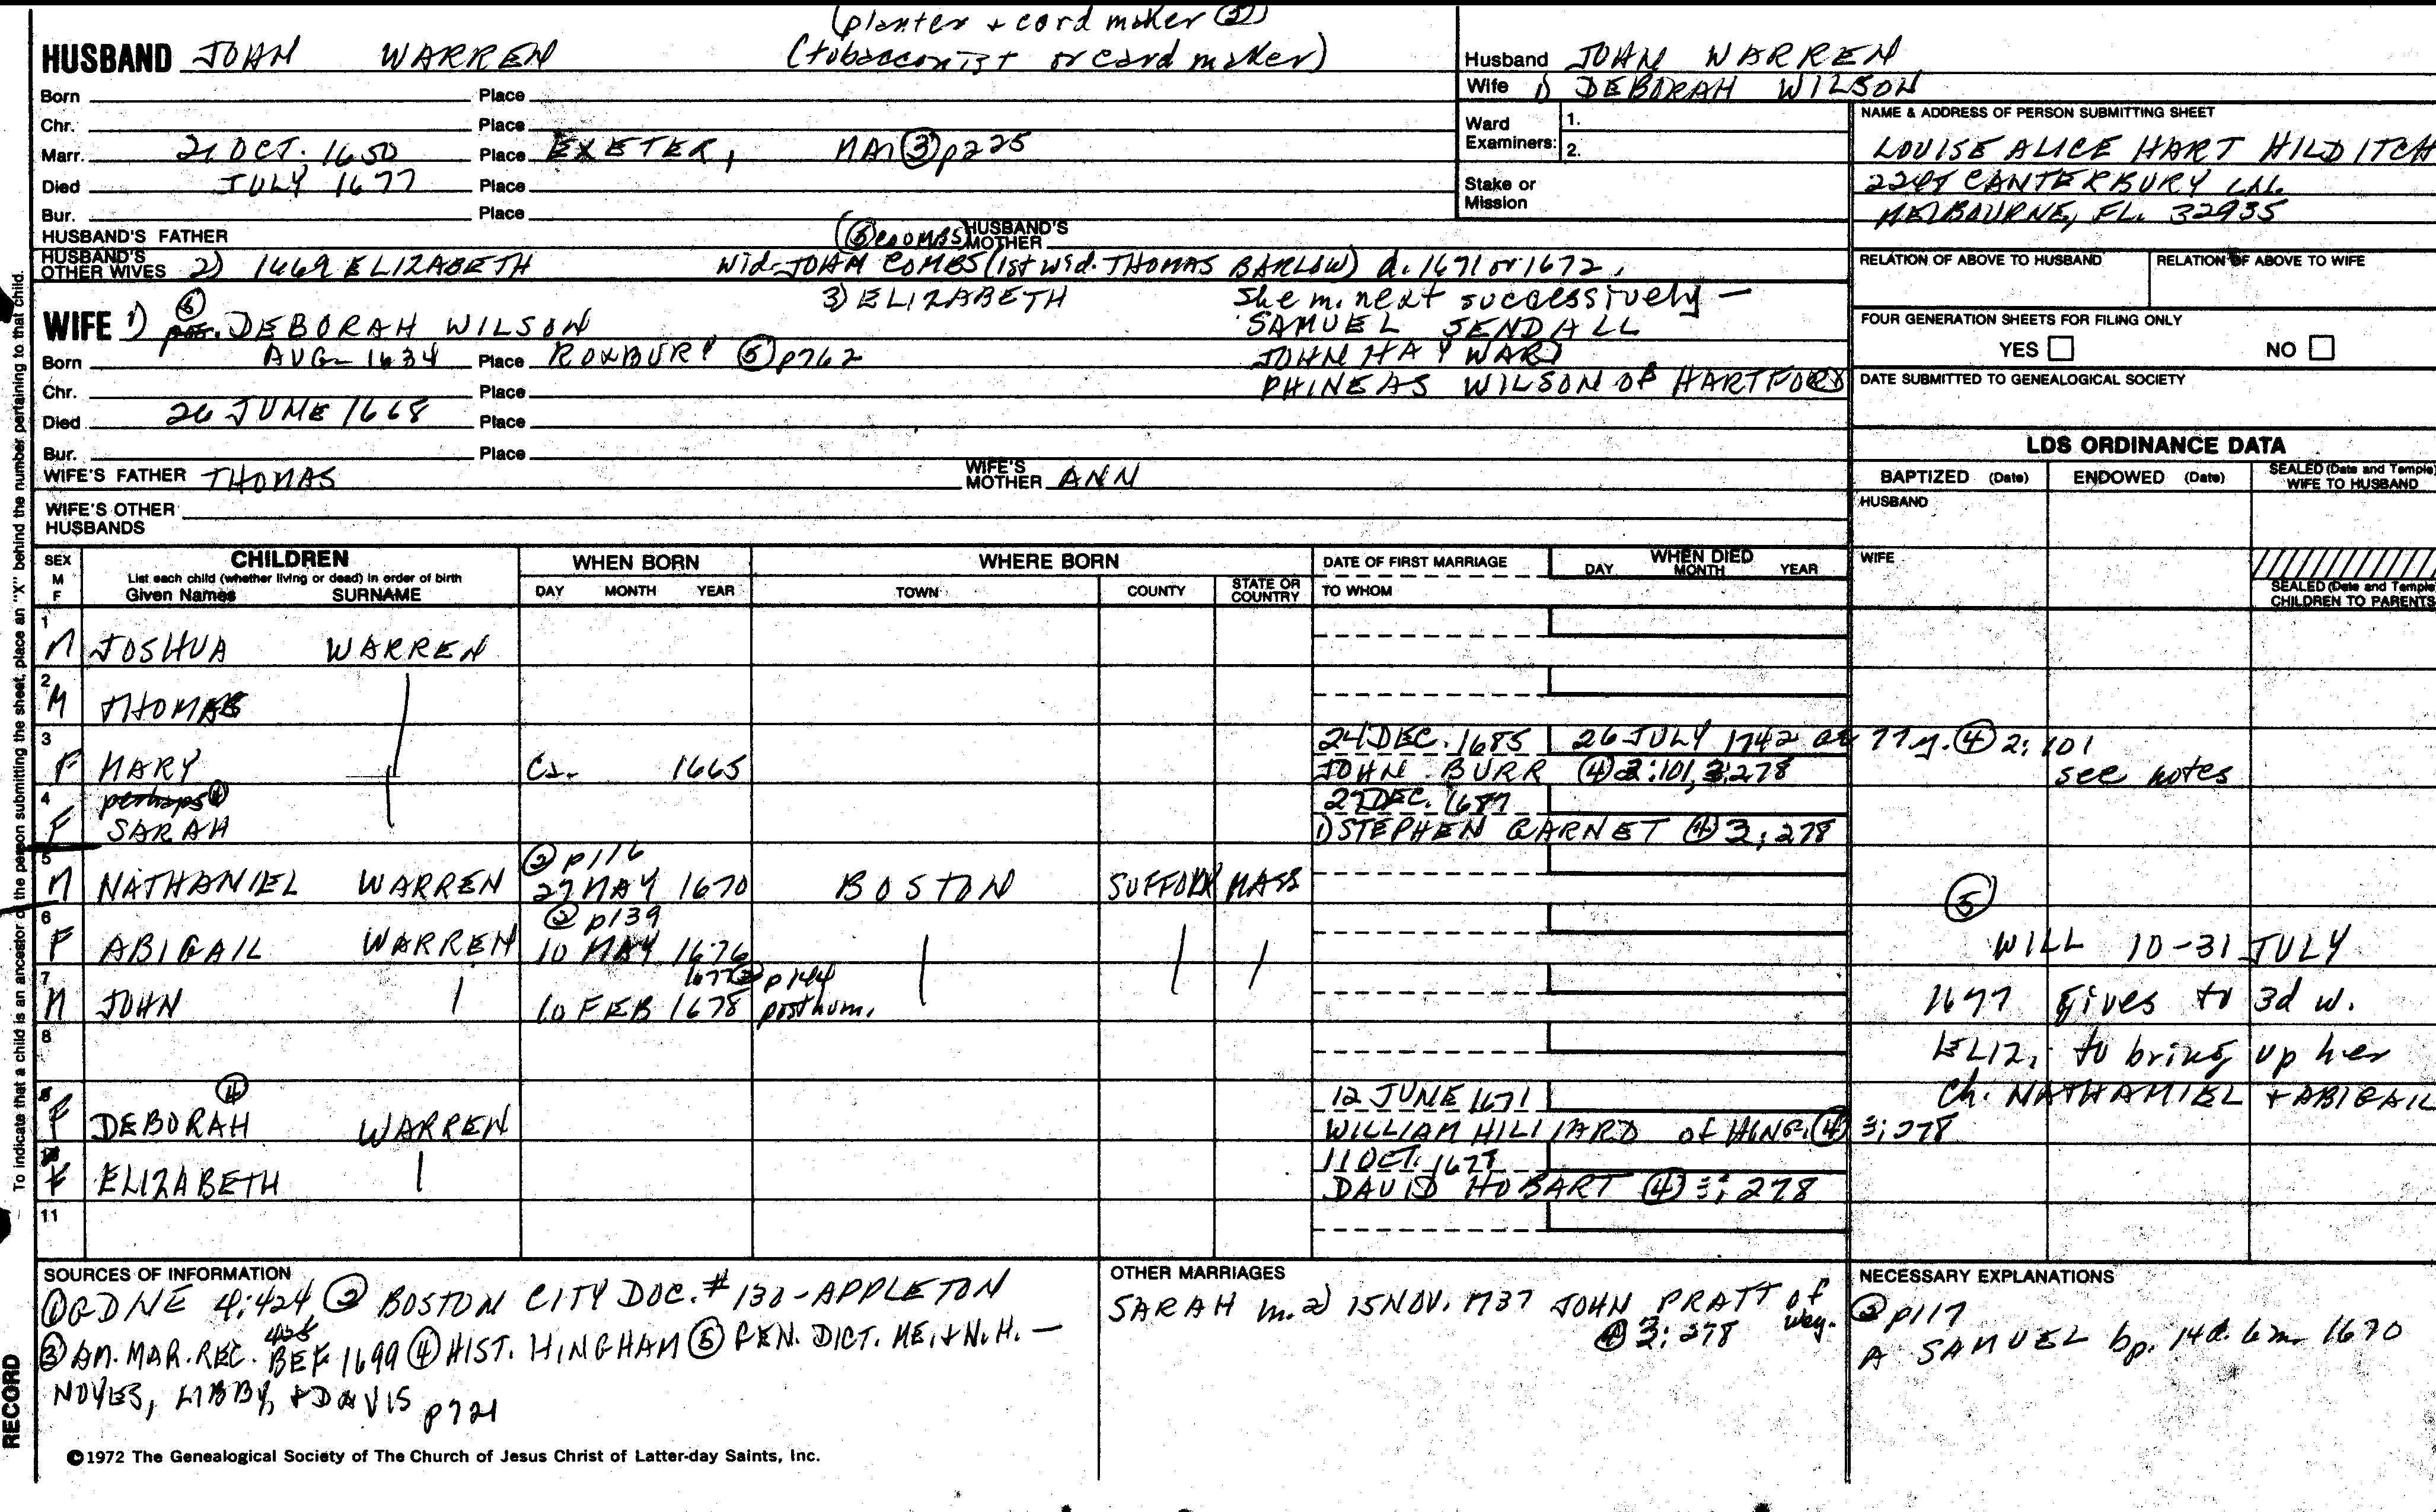 (planter + card maker ⑤)
HUSBAND JOHN WARREN (tobacconist or card maker)
Born Place
Chr. Place
Marr. 21 OCT. 1650 Place EXETER, ③ p225
Died JULY 1677 Place
Bur. Place
HUSBAND'S FATHER (⑤ COOMBS) HUSBAND'S MOTHER
HUSBAND'S OTHER WIVES 2) 1669 ELIZABETH wid. JOHN COMBS (1st wid. THOMAS BARLOW) d. 1671 or 1672.
3) ELIZABETH She m. next successively —
SAMUEL SENDALL
JOHN HAYWARD
PHINEAS WILSON OF HARTFORD
WIFE 1) ⑤ DEBORAH WILSON
Born AUG 1634 Place ROXBURY ⑤ p762
Chr. Place
Died 26 JUNE 1668 Place
Bur. Place
WIFE'S FATHER THOMAS WIFE'S MOTHER ANN
WIFE'S OTHER HUSBANDS
Husband JOHN WARREN
Wife 1) DEBORAH WILSON
Ward Examiners: 1.
2.
Stake or Mission
NAME & ADDRESS OF PERSON SUBMITTING SHEET
LOUISE ALICE HART HILDITCH
CANTERBURY LN.
MELBOURNE, FL. 32935
RELATION OF ABOVE TO HUSBAND RELATION OF ABOVE TO WIFE
FOUR GENERATION SHEETS FOR FILING ONLY
YES NO
DATE SUBMITTED TO GENEALOGICAL SOCIETY
LDS ORDINANCE DATA
BAPTIZED (Date) ENDOWED (Date) SEALED (Date and Temple) WIFE TO HUSBAND
HUSBAND
WIFE
SEALED (Date and Temple) CHILDREN TO PARENTS
SEX M F CHILDREN WHEN BORN WHERE BORN DATE OF FIRST MARRIAGE WHEN DIED
List each child (whether living or dead) in order of birth
Given Names SURNAME DAY MONTH YEAR TOWN COUNTY STATE OR COUNTRY TO WHOM DAY MONTH YEAR
1
M JOSHUA WARREN
2
M THOMAS
3 24 DEC. 1685 26 JULY 1742 ae 77 y. ④ 2:101
F MARY Ca. 1665 JOHN BURR ④ 2:101, 3:278 see notes
4 perhaps ④ 27 DEC. 1687
F SARAH 1) STEPHEN GARNET ④ 3:278
5 ② p116
M NATHANIEL WARREN 27 MAY 1670 BOSTON SUFFOLK MASS
6 ② p139
F ABIGAIL WARREN 10 MAY 1676
7 1677 ② p144
M JOHN 10 FEB 1678 posthum.
8
④ 12 JUNE 1671
F DEBORAH WARREN WILLIAM HILLIARD of HING. ④ 3:278
11 OCT. 1677
F ELIZABETH DAVID HOBART ④ 3:278
11
⑤
WILL 10-31 JULY
1677 gives to 3d w.
ELIZ. to bring up her
ch. NATHANIEL + ABIGAIL
SOURCES OF INFORMATION
① GDNE 4:424 ② BOSTON CITY DOC. # 130 - APPLETON
③ AM. MAR. REC. BEF 1699 ④ HIST. HINGHAM ⑤ GEN. DICT. ME. + N.H. —
NOYES, LIBBY, + DAVIS p721
OTHER MARRIAGES
SARAH m. 2) 15 NOV. 1737 JOHN PRATT of Wey.
④ 3:278
NECESSARY EXPLANATIONS
② p117
A SAMUEL bp. 14d. 6m. 1670
©1972 The Genealogical Society of The Church of Jesus Christ of Latter-day Saints, Inc.
To indicate that a child is an ancestor of the person submitting the sheet, place an "X" behind the number pertaining to that child.
RECORD